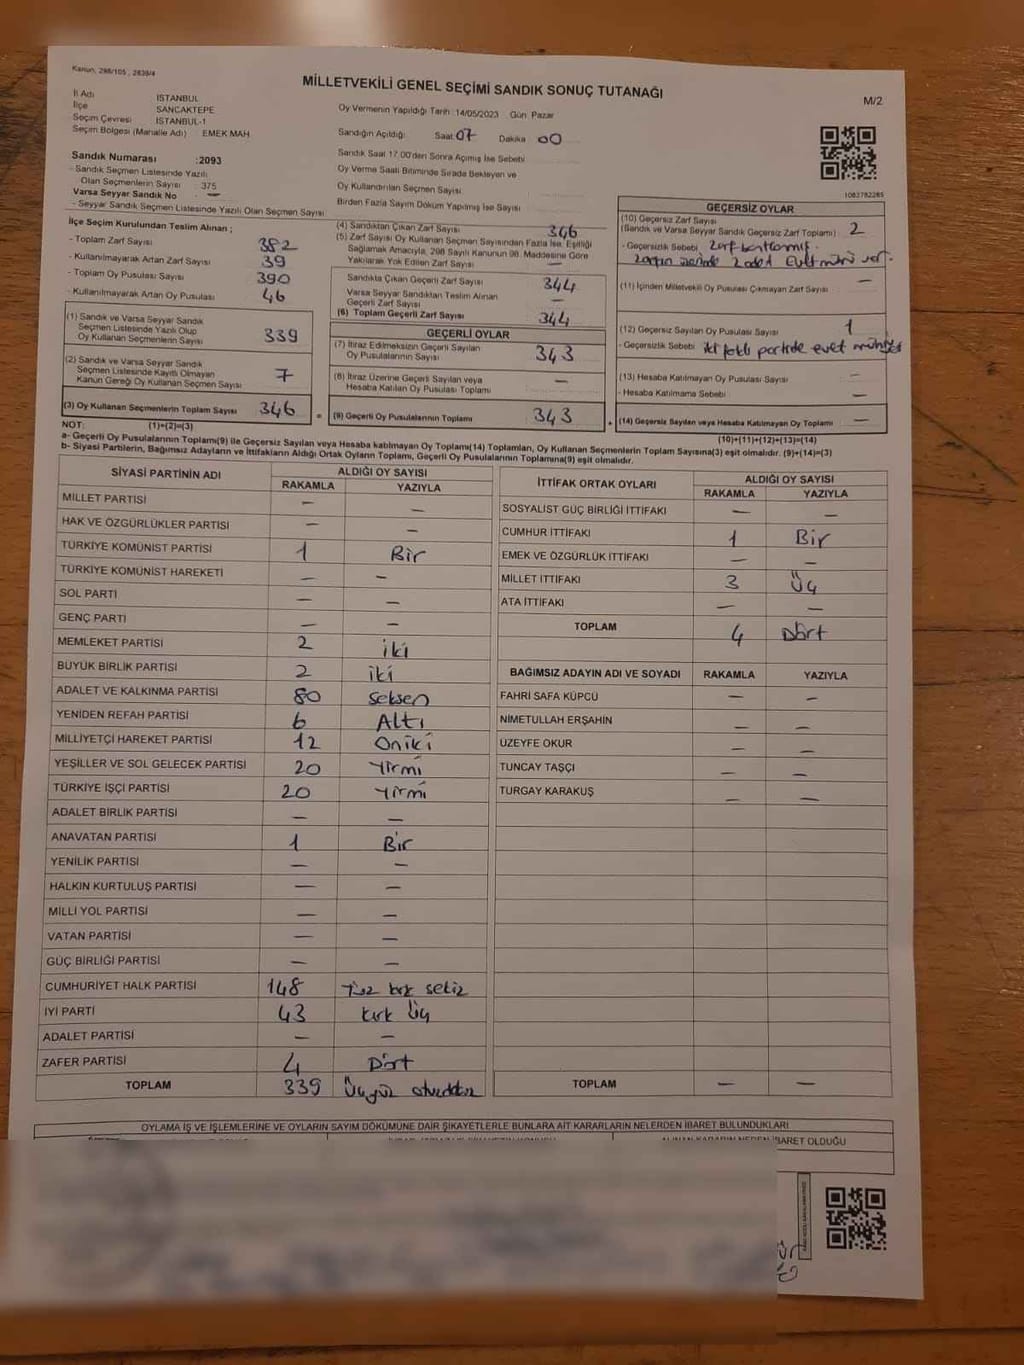 Kanun, 298/105 , 2839/4
MİLLETVEKİLİ GENEL SEÇİMİ SANDIK SONUÇ TUTANAĞI
M/2
İl Adı İSTANBUL
İlçe SANCAKTEPE
Seçim Çevresi İSTANBUL-1
Seçim Bölgesi (Mahalle Adı) EMEK MAH.
Oy Vermenin Yapıldığı Tarih 14/05/2023 Gün Pazar
Sandığın Açıldığı Saat 07 Dakika 00
Sandık Saat 17.00'den Sonra Açımış İse Sebebi
Oy Verme Saati Bitiminde Sırada Bekleyen ve
Oy Kullandırılan Seçmen Sayısı
Birden Fazla Sayım Döküm Yapılmış İse Sayısı
1083782285
Sandık Numarası :2093
- Sandık Seçmen Listesinde Yazılı
Olan Seçmenlerin Sayısı : 375
Varsa Seyyar Sandık No —
- Seyyar Sandık Seçmen Listesinde Yazılı Olan Seçmen Sayısı
İlçe Seçim Kurulundan Teslim Alınan ;
- Toplam Zarf Sayısı 382
- Kullanılmayarak Artan Zarf Sayısı 39
- Toplam Oy Pusulası Sayısı 390
- Kullanılmayarak Artan Oy Pusulası 46
(1) Sandık ve Varsa Seyyar Sandık
Seçmen Listesinde Yazılı Olup
Oy Kullanan Seçmenlerin Sayısı 339
(2) Sandık ve Varsa Seyyar Sandık
Seçmen Listesinde Kayıtlı Olmayan
Kanun Gereği Oy Kullanan Seçmen Sayısı 7
(3) Oy Kullanan Seçmenlerin Toplam Sayısı 346
(4) Sandıktan Çıkan Zarf Sayısı 346
(5) Zarf Sayısı Oy Kullanan Seçmen Sayısından Fazla İse, Eşitliği
Sağlamak Amacıyla, 298 Sayılı Kanunun 98. Maddesine Göre
Yakılarak Yok Edilen Zarf Sayısı —
Sandıkta Çıkan Geçerli Zarf Sayısı 344
Varsa Seyyar Sandıktan Teslim Alınan
Geçerli Zarf Sayısı —
(6) Toplam Geçerli Zarf Sayısı 344
GEÇERLİ OYLAR
(7) İtiraz Edilmeksizin Geçerli Sayılan
Oy Pusulalarının Sayısı 343
(8) İtiraz Üzerine Geçerli Sayılan veya
Hesaba Katılan Oy Pusulası Toplamı —
= (9) Geçerli Oy Pusulalarının Toplamı 343
GEÇERSİZ OYLAR
(10) Geçersiz Zarf Sayısı
(Sandık ve Varsa Seyyar Sandık Geçersiz Zarf Toplamı) 2
- Geçersizlik Sebebi
2 adet Evet mührü var.
(11) İçinden Milletvekili Oy Pusulası Çıkmayan Zarf Sayısı —
(12) Geçersiz Sayılan Oy Pusulası Sayısı 1
- Geçersizlik Sebebi iki farklı partide evet mührü
(13) Hesaba Katılmayan Oy Pusulası Sayısı —
- Hesaba Katılmama Sebebi —
+ (14) Geçersiz Sayılan veya Hesaba Katılmayan Oy Toplamı —
NOT: (1)+(2)=(3) (10)+(11)+(12)+(13)=(14)
a- Geçerli Oy Pusulalarının Toplamı(9) ile Geçersiz Sayılan veya Hesaba katılmayan Oy Toplamı(14) Toplamları, Oy Kullanan Seçmenlerin Toplam Sayısına(3) eşit olmalıdır. (9)+(14)=(3)
b- Siyasi Partilerin, Bağımsız Adayların ve İttifakların Aldığı Ortak Oyların Toplamı, Geçerli Oy Pusulalarının Toplamına(9) eşit olmalıdır.
SİYASİ PARTİNİN ADI ALDIĞI OY SAYISI
RAKAMLA YAZIYLA
MİLLET PARTİSİ — —
HAK VE ÖZGÜRLÜKLER PARTİSİ — —
TÜRKİYE KOMÜNİST PARTİSİ 1 Bir
TÜRKİYE KOMÜNİST HAREKETİ — —
SOL PARTİ — —
GENÇ PARTİ — —
MEMLEKET PARTİSİ 2 iki
BÜYÜK BİRLİK PARTİSİ 2 iki
ADALET VE KALKINMA PARTİSİ 80 seksen
YENİDEN REFAH PARTİSİ 6 Altı
MİLLİYETÇİ HAREKET PARTİSİ 12 Oniki
YEŞİLLER VE SOL GELECEK PARTİSİ 20 Yirmi
TÜRKİYE İŞÇİ PARTİSİ 20 Yirmi
ADALET BİRLİK PARTİSİ — —
ANAVATAN PARTİSİ 1 Bir
YENİLİK PARTİSİ — —
HALKIN KURTULUŞ PARTİSİ — —
MİLLİ YOL PARTİSİ — —
VATAN PARTİSİ — —
GÜÇ BİRLİĞİ PARTİSİ — —
CUMHURİYET HALK PARTİSİ 148 Yüz kırk sekiz
İYİ PARTİ 43 Kırk Üç
ADALET PARTİSİ — —
ZAFER PARTİSİ 4 Dört
TOPLAM 339 Üçyüz otuzdokuz
İTTİFAK ORTAK OYLARI ALDIĞI OY SAYISI
RAKAMLA YAZIYLA
SOSYALİST GÜÇ BİRLİĞİ İTTİFAKI — —
CUMHUR İTTİFAKI 1 Bir
EMEK VE ÖZGÜRLÜK İTTİFAKI — —
MİLLET İTTİFAKI 3 Üç
ATA İTTİFAKI — —
TOPLAM 4 Dört
BAĞIMSIZ ADAYIN ADI VE SOYADI RAKAMLA YAZIYLA
FAHRİ SAFA KÜPÇÜ — —
NİMETULLAH ERŞAHİN — —
ÜZEYFE OKUR — —
TUNCAY TAŞÇI — —
TURGAY KARAKUŞ — —
TOPLAM — —
OYLAMA İŞ VE İŞLEMLERİNE VE OYLARIN SAYIM DÖKÜMÜNE DAİR ŞİKAYETLERLE BUNLARA AİT KARARLARIN NELERDEN İBARET BULUNDUKLARI
İBARET OLDUĞU